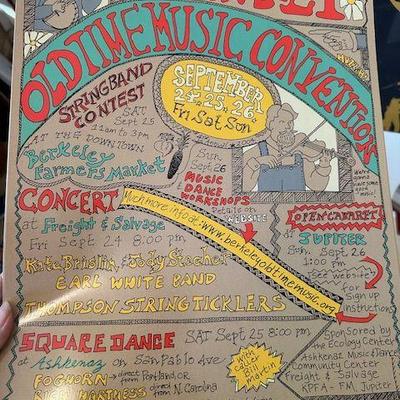 OLD TIME MUSIC CONVENTION
STRINGBAND
CONTEST
SAT
Sept 25
11am to 3pm
AT THE DOWNTOWN
Berkeley
Farmers Market
SEPTEMBER
24, 25, 26
Fri Sat Sun
Sun
Sept 26
MUSIC
& DANCE
WORKSHOPS
We're
gonna
have
some
good
music
CONCERT
at Freight & Salvage
Fri Sept 24 8:00 pm
Much more info at: www.berkeleyoldtimemusic.org
WEBSITE
Kate Brislin & Jody Stecher
EARL WHITE BAND
THOMPSON STRING TICKLERS
OPEN CABARET
at
JUPITER
Sun. Sept 26
1:00 pm
See website
for
Sign up
instructions
SQUARE DANCE SAT Sept 25 8:00 pm
at Ashkenaz on San Pablo Ave
FOGHORN direct from Portland, OR
direct from N. Carolina
with
caller
Bill
Martin
Sponsored by
the Ecology Center
Ashkenaz Music & Dance
Community Center
Freight & Salvage
KPFA-FM, Jupiter